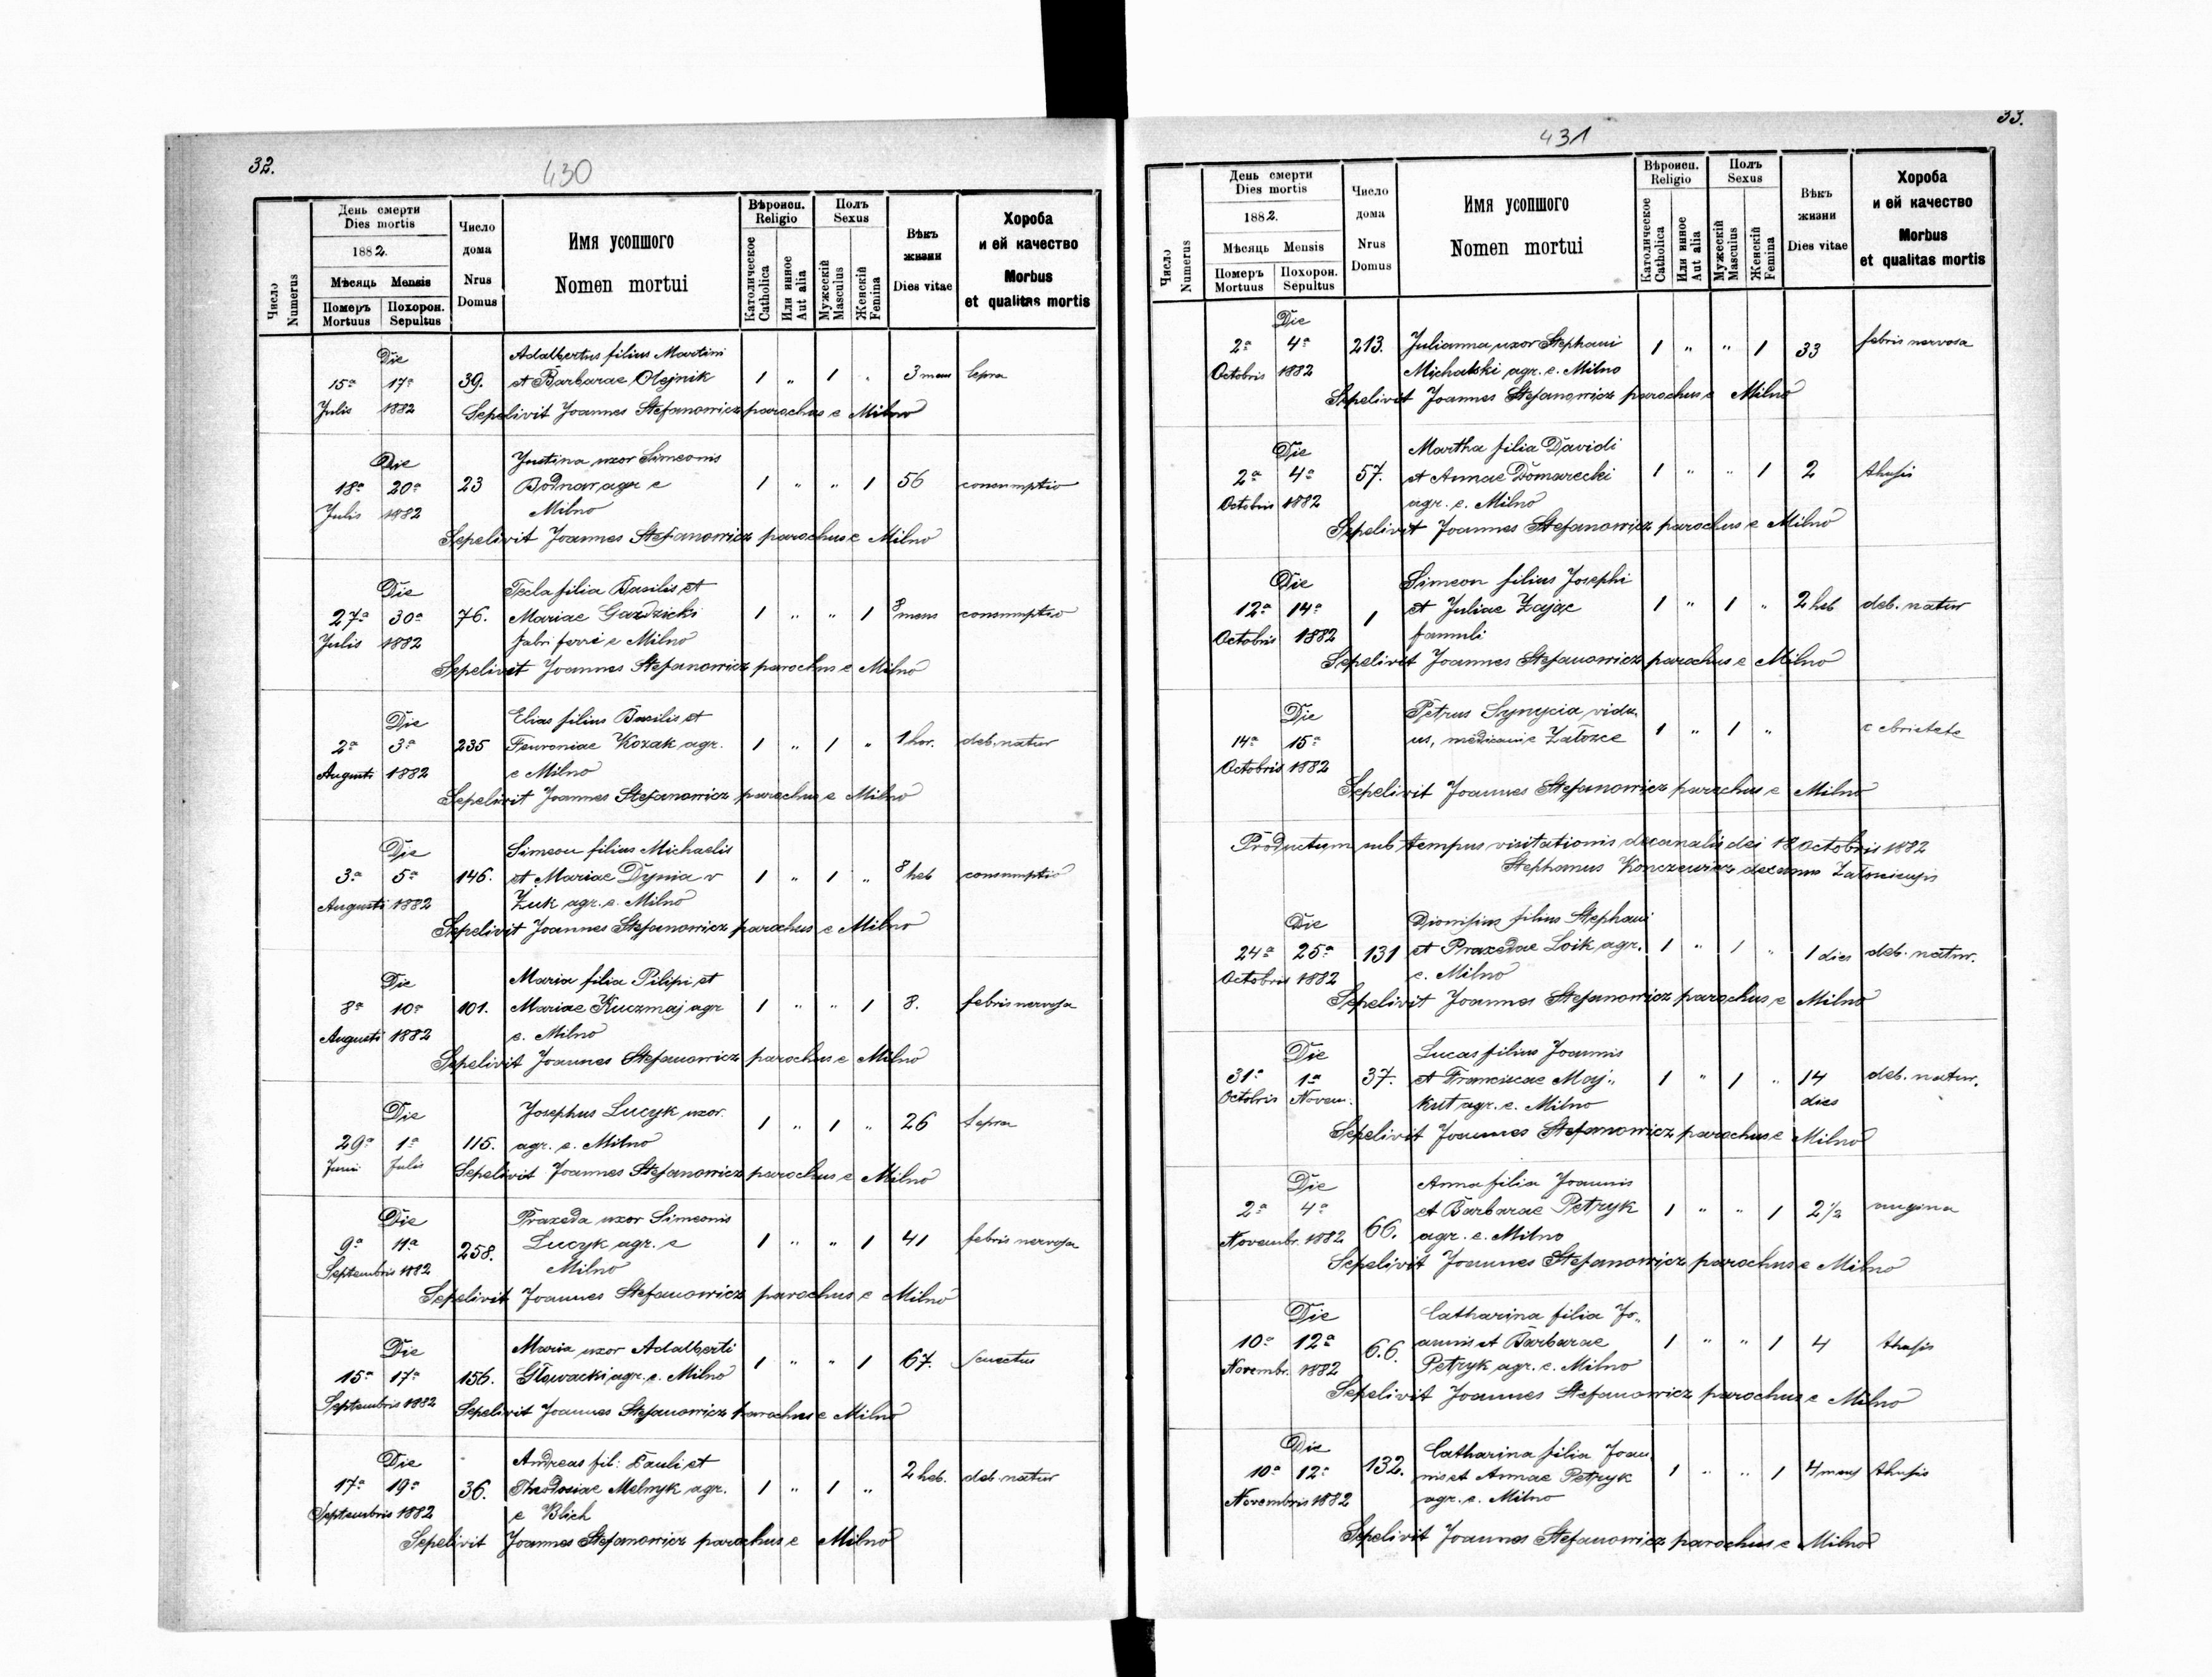 32.
430
Число
Numerus
День смерти
Dies mortis
1882.
Мѣсяць Mensis
Померъ
Mortuus
Похорон.
Sepultus
Число
дома
Nrus
Domus
Имя усопшого
Nomen mortui
Вѣроисп.
Religio
Католическое
Catholica
Или инное
Aut alia
Полъ
Sexus
Мужескій
Masculus
Женскій
Femina
Вѣкъ
жизни
Dies vitae
Хороба
и ей качество
Morbus
et qualitas mortis
Die Adalbertus filius Martini
15ª 17ª 39. et Barbarae Olejnik 1 " 1 " 3 mens lepra
Julis 1882 Sepelivit Joannes Stefanowicz parochus e Milno
Die Justina uxor Simeonis
18ª 20ª 23 Bodnar agr e 1 " " 1 56 consumptio
Julis 1882 Milno
Sepelivit Joannes Stefanowicz parochus e Milno
Die Tecla filia Basilis et
27ª 30ª 76. Mariae Gazdzicki 1 " " 1 8 mens consumptio
Julis 1882 fabri ferri e Milno
Sepelivit Joannes Stefanowicz parochus e Milno
Die Elias filius Basilis et
2ª 3ª 235 Fevroniae Kozak agr. 1 " 1 " 1 hor. deb. natur
Augusti 1882 e Milno
Sepelivit Joannes Stefanowicz parochus e Milno
Die Simeon filius Michaelis
3ª 5ª 146. et Mariae Dynia v 1 " 1 " 8 heb consumptio
Augusti 1882 Żuk agr. e. Milno
Sepelivit Joannes Stefanowicz parochus e Milno
Die Maria filia Pilipi et
8ª 10ª 101. Mariae Kuczmaj agr 1 " " 1 8. febris nervosa
Augusti 1882 e. Milno
Sepelivit Joannes Stefanowicz parochus e Milno
Die Josephus Lucyk uxor.
29ª 1ª 115. agr. e. Milno 1 " 1 " 26 lepra
Junii Julis Sepelivit Joannes Stefanowicz parochus e Milno
Die Praxeda uxor Simeonis
9ª 11ª 258. Lucyk agr. e 1 " " 1 41 febris nervosa
Septembris 1882 Milno
Sepelivit Joannes Stefanowicz parochus e Milno
Die Maria uxor Adalberti
15ª 17ª 156. Głowacki agr. e. Milno 1 " " 1 67. senectus
Septembris 1882 Sepelivit Joannes Stefanowicz parochus e Milno
Die Andreas fil: Pauli et
17ª 19ª 36. Theodosiae Melnyk agr. 1 " 1 " 2 heb. deb. natur
Septembris 1882 e Blich
Sepelivit Joannes Stefanowicz parochus e Milno
33.
431
Число
Numerus
День смерти
Dies mortis
1882.
Мѣсяць Mensis
Померъ
Mortuus
Похорон.
Sepultus
Число
дома
Nrus
Domus
Имя усопшого
Nomen mortui
Вѣроисп.
Religio
Католическое
Catholica
Или инное
Aut alia
Полъ
Sexus
Мужескій
Masculus
Женскій
Femina
Вѣкъ
жизни
Dies vitae
Хороба
и ей качество
Morbus
et qualitas mortis
Die
2ª 4ª 213. Julianna uxor Stephani 1 " " 1 33 febris nervosa
Octobris 1882 Michalski agr. e. Milno
Sepelivit Joannes Stefanowicz parochus e Milno
Die Martha filia Davidi
2ª 4ª 57. et Annae Domarecki 1 " " 1 2 thusis
Octobris 1882 agr. e. Milno
Sepelivit Joannes Stefanowicz parochus e Milno
Die Simeon filius Josephi
12ª 14ª 1 et Juliae Zając 1 " 1 " 2 heb deb. natur
Octobris 1882 famuli
Sepelivit Joannes Stefanowicz parochus e Milno
Die Petrus Synycia vidu
14ª 15ª us, Załozce 1 " 1 " e ebrietete
Octobris 1882
Sepelivit Joannes Stefanowicz parochus e Milno
Productum sub tempus visitationis decanalis dei 18 Octobris 1882
Stephanus Konczewicz decanus
Die Dionisius filius Stephani
24ª 25ª 131 et Praxedae Loik agr. 1 " 1 " 1 dies deb. natur.
Octobris 1882 e. Milno
Sepelivit Joannes Stefanowicz parochus e Milno
Die Lucas filius Joannis
31ª 1ª 37. et Franciscae Maj„ 1 " 1 " 14 deb. natur.
Octobris Novem. kut agr. e. Milno dies
Sepelivit Joannes Stefanowicz parochus e Milno
Die Anna filia Joannis
2ª 4ª 66. et Barbarae Petryk 1 " " 1 2½ angina
Novembr. 1882 agr. e. Milno
Sepelivit Joannes Stefanowicz parochus e Milno
Die Catharina filia Jo„
10ª 12ª 6.6. annis et Barbarae 1 " " 1 4 thusis
Novembr. 1882 Petryk agr. e. Milno
Sepelivit Joannes Stefanowicz parochus e Milno
Die Catharina filia Joan
10ª 12ª 132. nis et Annae Petryk 1 " " 1 4 mens thusis
Novembris 1882 agr. e. Milno
Sepelivit Joannes Stefanowicz parochus e Milno